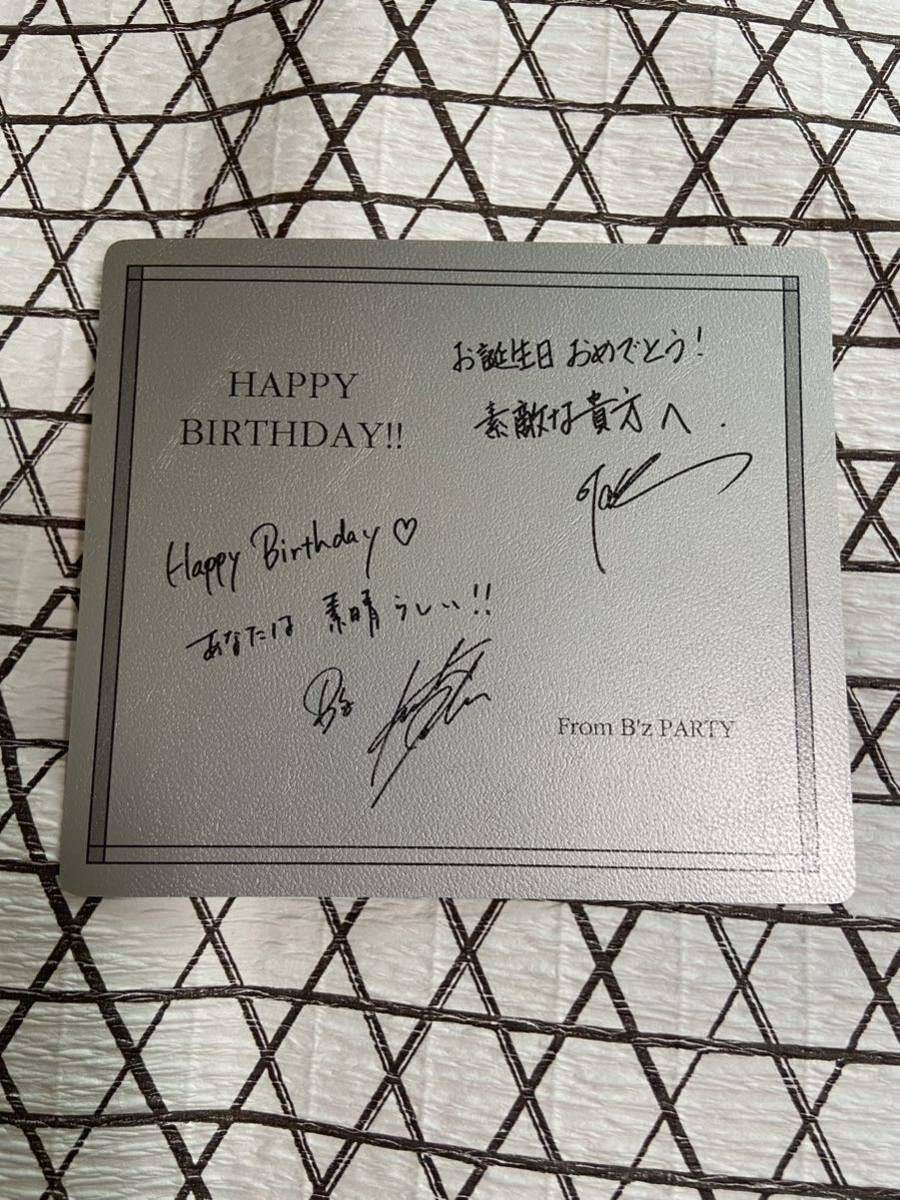 HAPPY
BIRTHDAY!!
お誕生日 おめでとう!
素敵な貴方へ.
Happy Birthday♡
あなたは 素晴らしい!!
B'z
From B'z PARTY